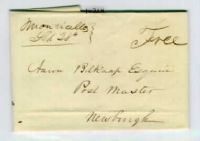 Monticello
Feb 28th
Free
Aaron Belknap Esquire
Post Master
Newburgh